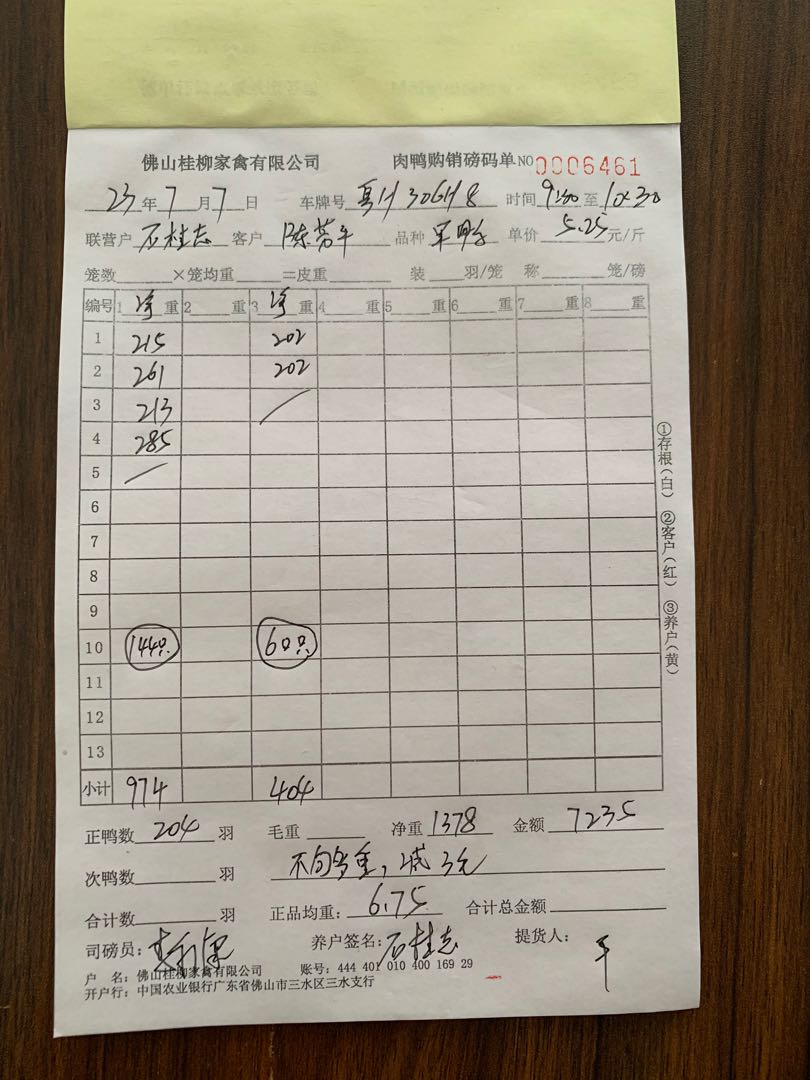 佛山桂柳家禽有限公司 肉鸭购销磅码单 NO 0006461
23年7月7日 车牌号 粤H306H8 时间 9:00至10:30
联营户 石桂志 客户 陈芳平 品种 单价 5.25元/斤
笼数 ×笼均重 =皮重 装 羽/笼 称 笼/磅
编号 1 净重 2 重 3 净重 4 重 5 重 6 重 7 重 8 重
1 215 202
2 261 202
3 213
4 285
5
6
7
8
9
10 144只 60只
11
12
13
小计 974 404
正鸭数 204 羽 毛重 净重 1378 金额 7235
次鸭数 羽 不包多重,减3元
合计数 羽 正品均重: 6.75 合计总金额
司磅员: 养户签名: 石桂志 提货人: 平
户 名: 佛山桂柳家禽有限公司 账号: 444 401 010 400 169 29
开户行: 中国农业银行广东省佛山市三水区三水支行
①存根(白) ②客户(红) ③养户(黄)